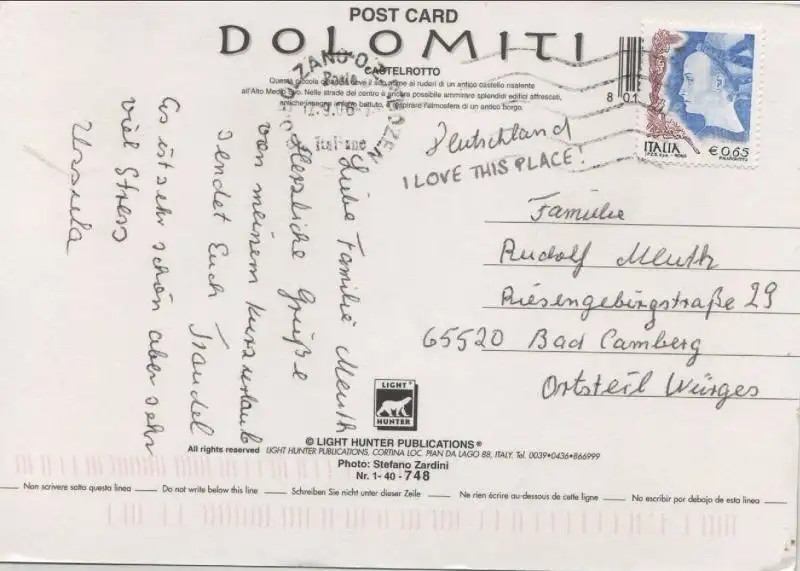 POST CARD
DOLOMITI
CASTELROTTO
Questa piccola deve il suo nome ai ruderi di un antico castello risalente
all'Alto Medio Evo. Nelle strade del centro è ancora possibile ammirare splendidi edifici affrescati,
antiche insegne in ferro battuto, e respirare l'atmosfera di un antico borgo.
BOLZANO BOZEN
Poste
12.9.06
Italiane
8 01
ITALIA
€ 0,65
Deutschland
I LOVE THIS PLACE!
Familie
Rudolf Meuth
Riesengebirgstraße 29
65520 Bad Camberg
Ortsteil Würges
Liebe Familie Meuth
Herzliche Grüße
von meinem Kurzurlaub
sendet Euch Traudel
Es ist sehr schön aber sehr
viel Stress
Ursula
LIGHT
HUNTER
© LIGHT HUNTER PUBLICATIONS®
All rights reserved LIGHT HUNTER PUBLICATIONS, CORTINA LOC. PIAN DA LAGO 88, ITALY. Tel. 0039•0436•866999
Photo: Stefano Zardini
Nr. 1- 40 - 748
Non scrivere sotto questa linea Do not write below this line Schreiben Sie nicht unter dieser Zeile Ne rien écrire au-dessous de cette ligne No escribir por debajo de esta linea